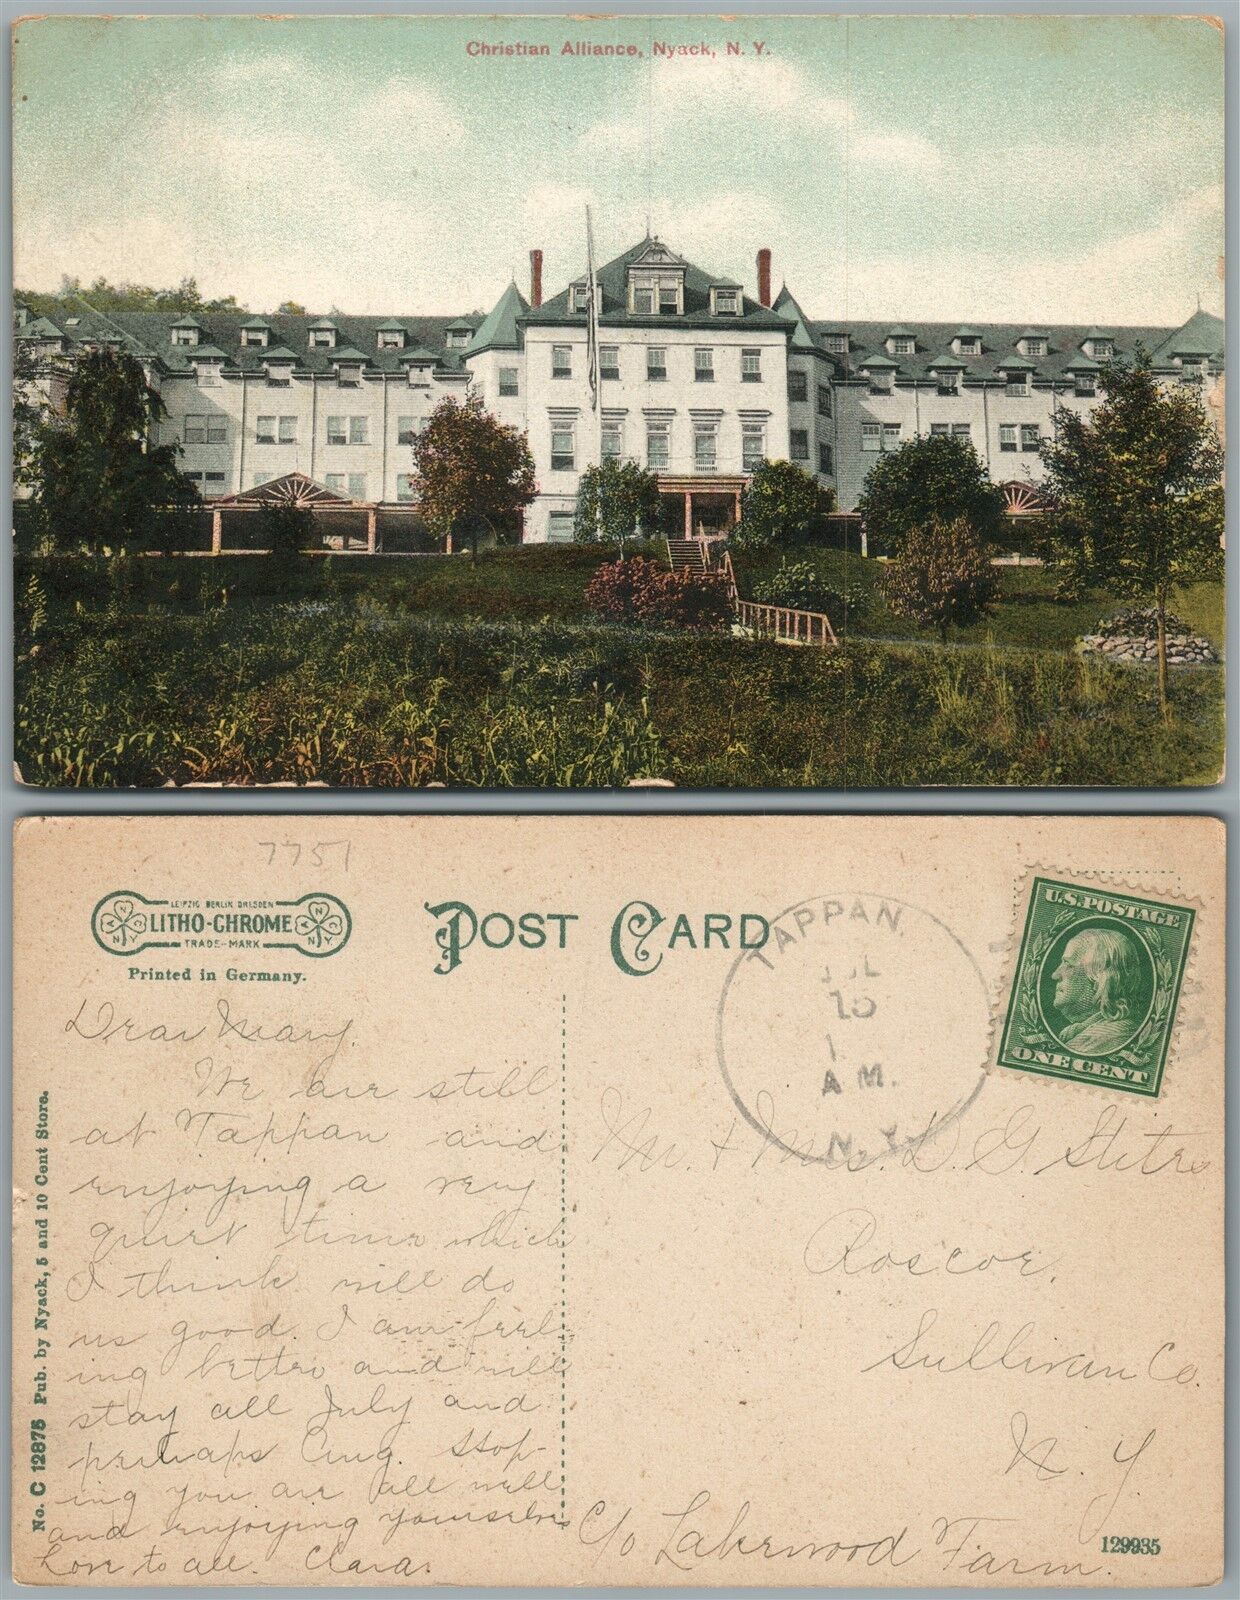 Christian Alliance, Nyack, N. Y.
7751
LEIPZIG BERLIN DRESDEN
LITHO-CHROME
TRADE-MARK
N Y
N Y
Printed in Germany.
POST CARD
TAPPAN,
JUL
15
1
A M.
N. Y.
U.S. POSTAGE
ONE CENT
Dear Mary.
We are still
at Tappan and
enjoying a very
quiet time which
I think will do
us good. I am feel-
ing better and will
stay all July and
perhaps Aug. Hop-
ing you are all well
and enjoying yourselves
Love to all. Clara.
Mr. + Mrs. D. G.
Roscoe,
Sullivan Co.
N. Y.
C/o Lakewood Farm.
129935
No. C 12875 Pub. by Nyack, 5 and 10 Cent Store.